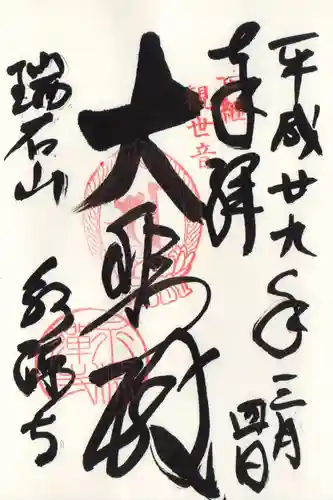 平成廿九年三月四日
奉拝
世継
観世音
大悲殿
瑞石山
永源寺